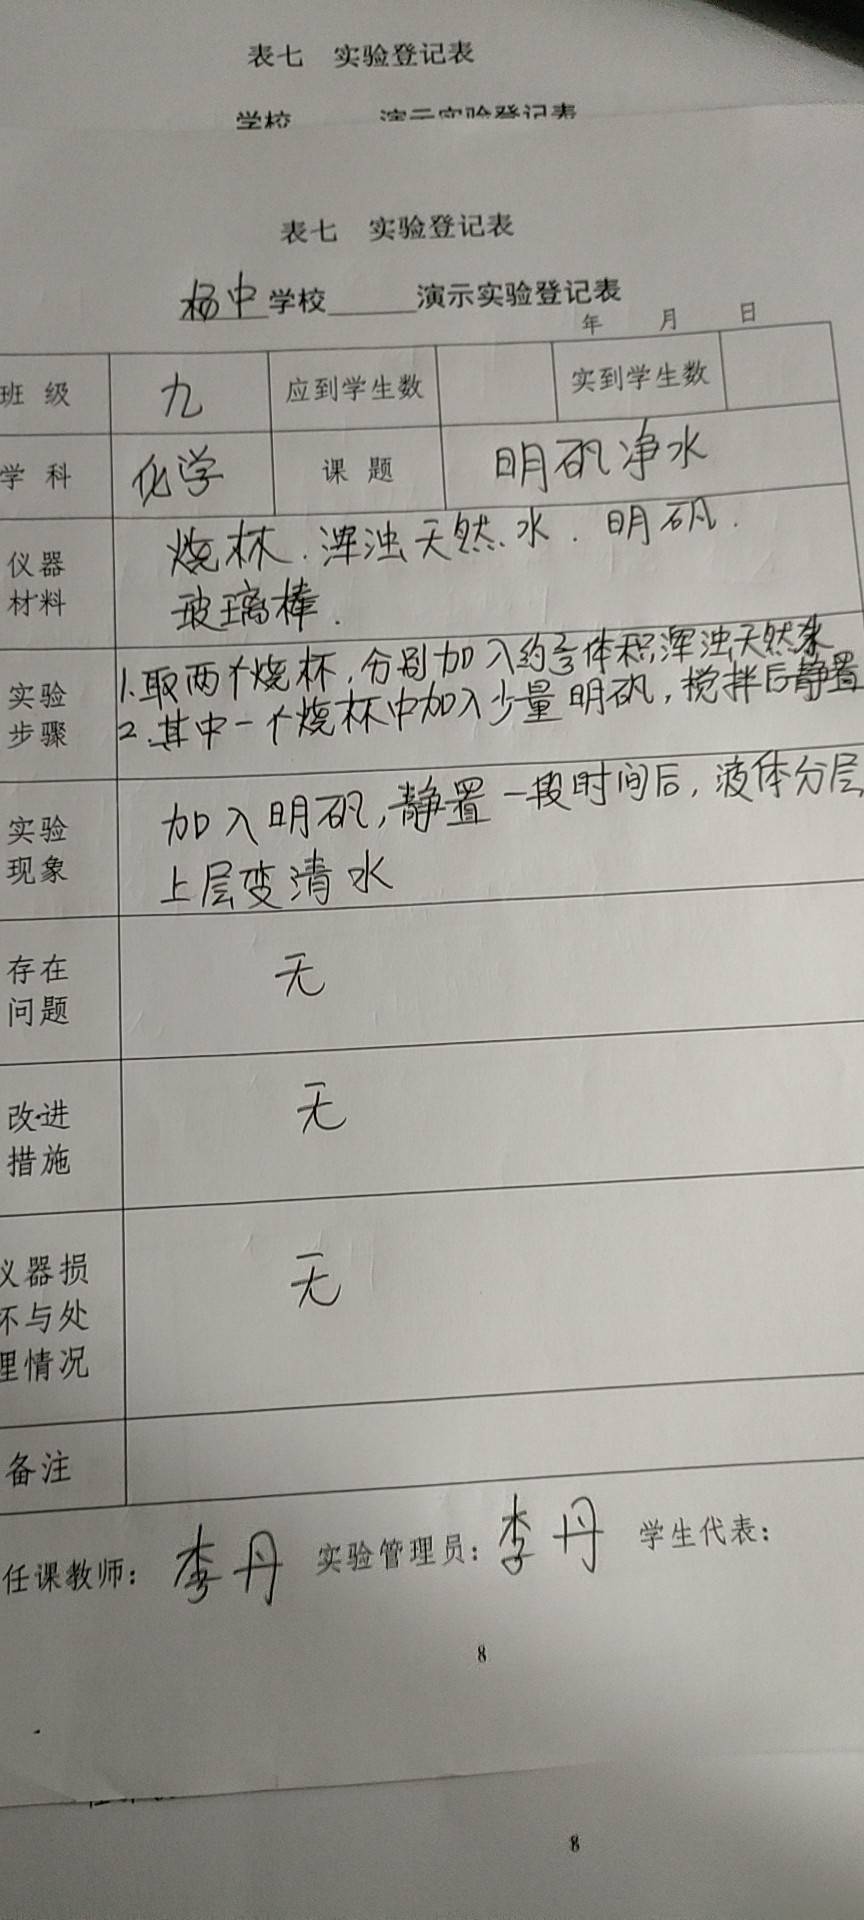 表七 实验登记表
学校 演示实验登记表
表七 实验登记表
杨中学校______演示实验登记表
年 月 日
班级 九 应到学生数 实到学生数
学科 化学 课题 明矾净水
仪器材料 烧杯.浑浊天然水.明矾.
玻璃棒.
实验步骤 1.取两个烧杯,分别加入约2/3体积浑浊天然水
2.其中一个烧杯中加入少量明矾,搅拌后静置
实验现象 加入明矾,静置一段时间后,液体分层
上层变清水
存在问题 无
改进措施 无
仪器损坏与处理情况 无
备注
任课教师:李丹 实验管理员:李丹 学生代表:
8
8